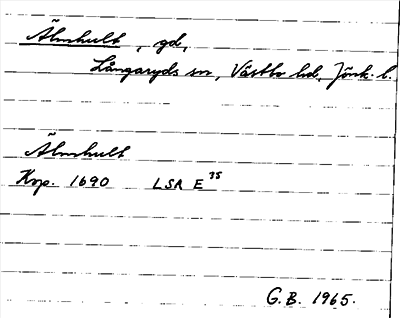 Älmhult, gd,
Långaryds sn, Västbo hd, Jönk. l.
Älmhult
Krp. 1690 LSR E 35
G.B. 1965.